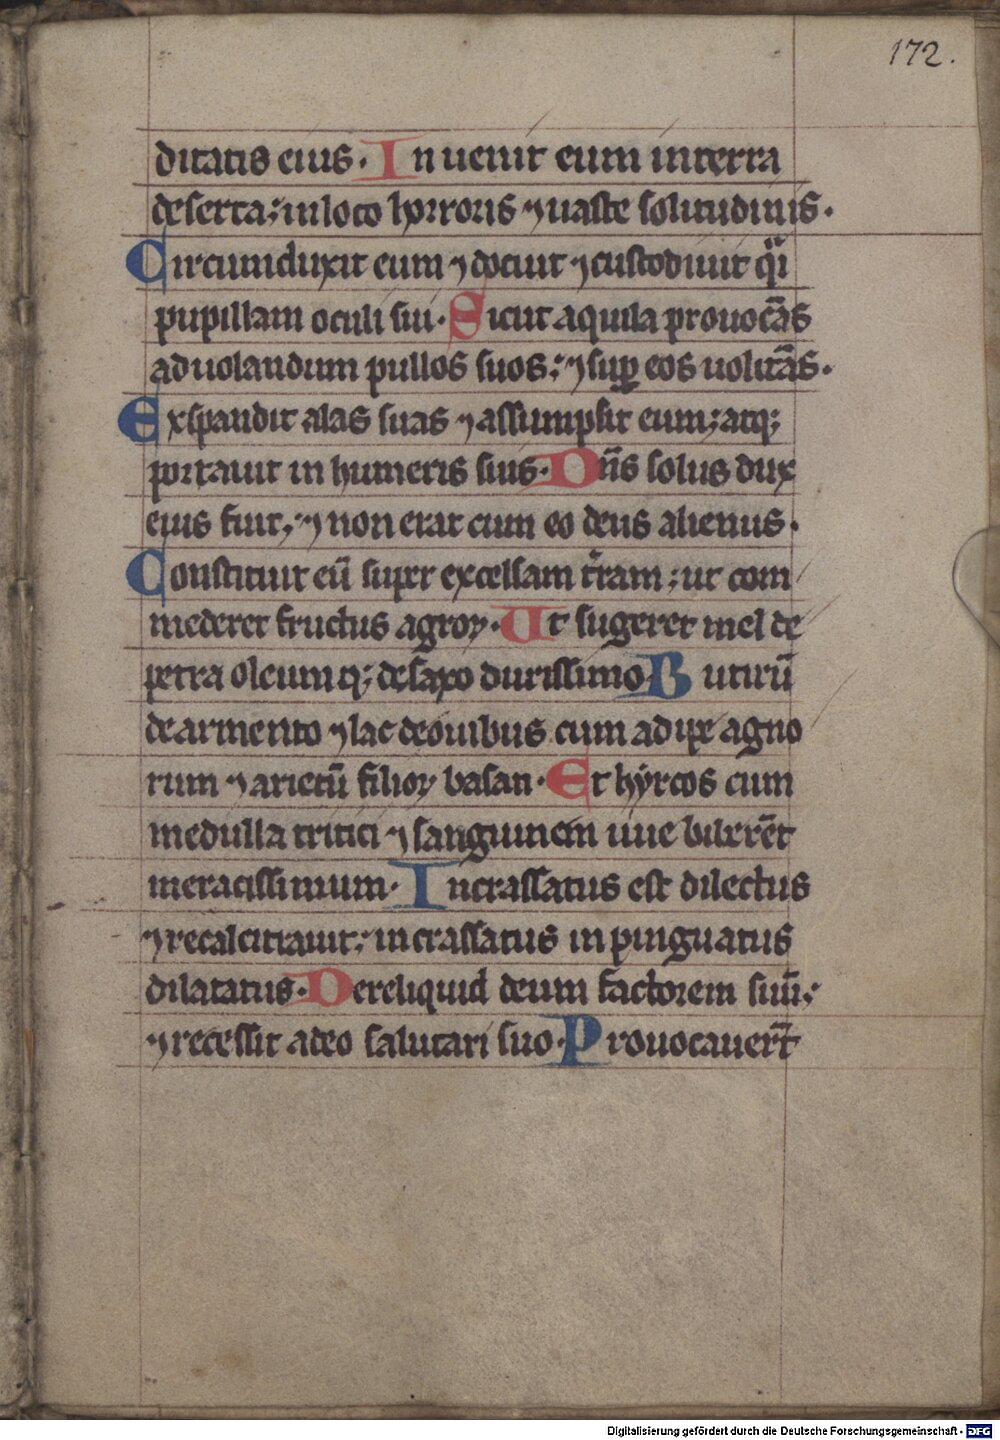 172.
ditatis eius. In uenit eum in terra
deserta; in loco horroris ⁊ uaste solitudinis.
Circumduxit eum ⁊ docuit ⁊ custodiuit q̈i
pupillam oculi sui. Sicut aquila prouocās
ad uolandum pullos suos; ⁊ suꝑ eos uolitās.
Expandit alas suas ⁊ assumpsit eum; atq;
portauit in humeris suis. Dn̄s solus dux
eius fuit; ⁊ non erat cum eo deus alienus.
Constituit eū super excelsam t̄ram; ut com
mederet fructus agroꝝ. Ut sugeret mel de
petra oleumq; de saxo durissimo. Butirū
de armento ⁊ lac de ouibus cum adipe agno
rum ⁊ arietū filioꝝ basan. Et hyrcos cum
medulla tritici ⁊ sanguinem uue biberēt
meracissimum. Incrassatus est dilectus
⁊ recalcitrauit; incrassatus inpinguatus
dilatatus. Dereliquid deum factorem suū;
⁊ recessit a deo salutari suo. Prouocauer̄t
Digitalisierung gefördert durch die Deutsche Forschungsgemeinschaft - DFG